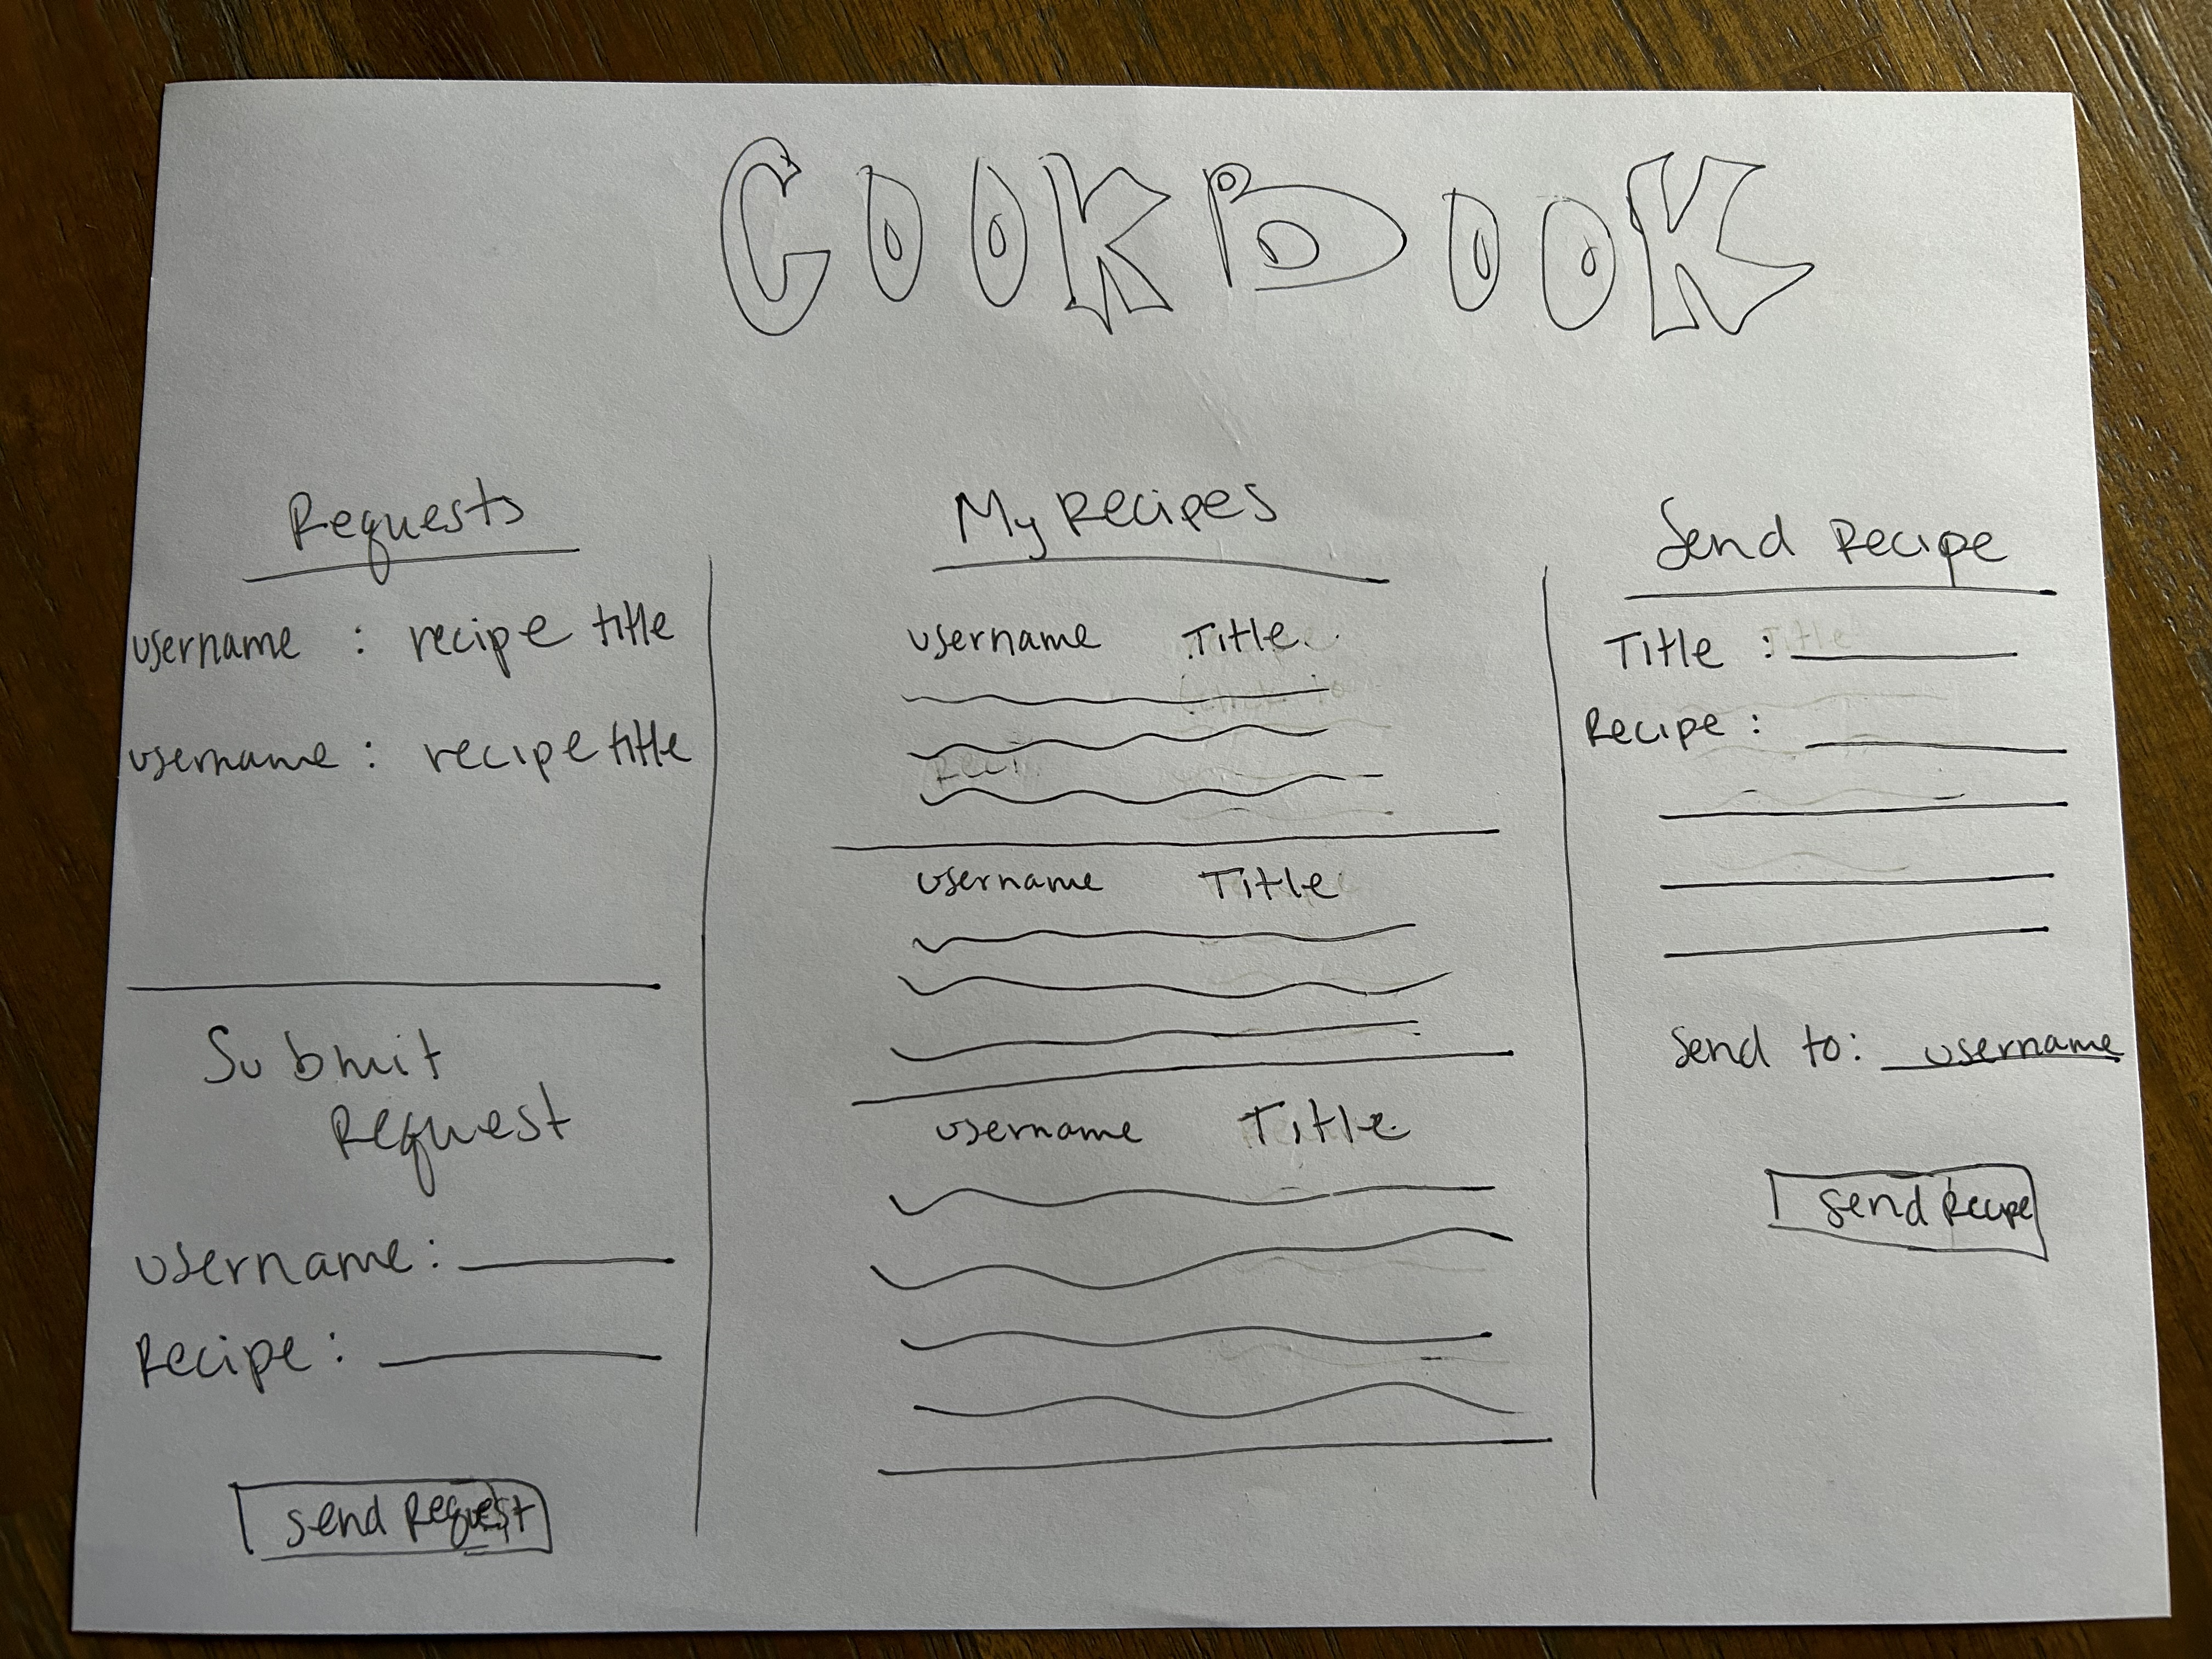 COOKBOOK
Requests
username : recipe title
username : recipe title
Submit
Request
username :
recipe :
send request
My Recipes
username Title
username Title
username Title
Send Recipe
Title :
Recipe :
Send to: username
send recipe